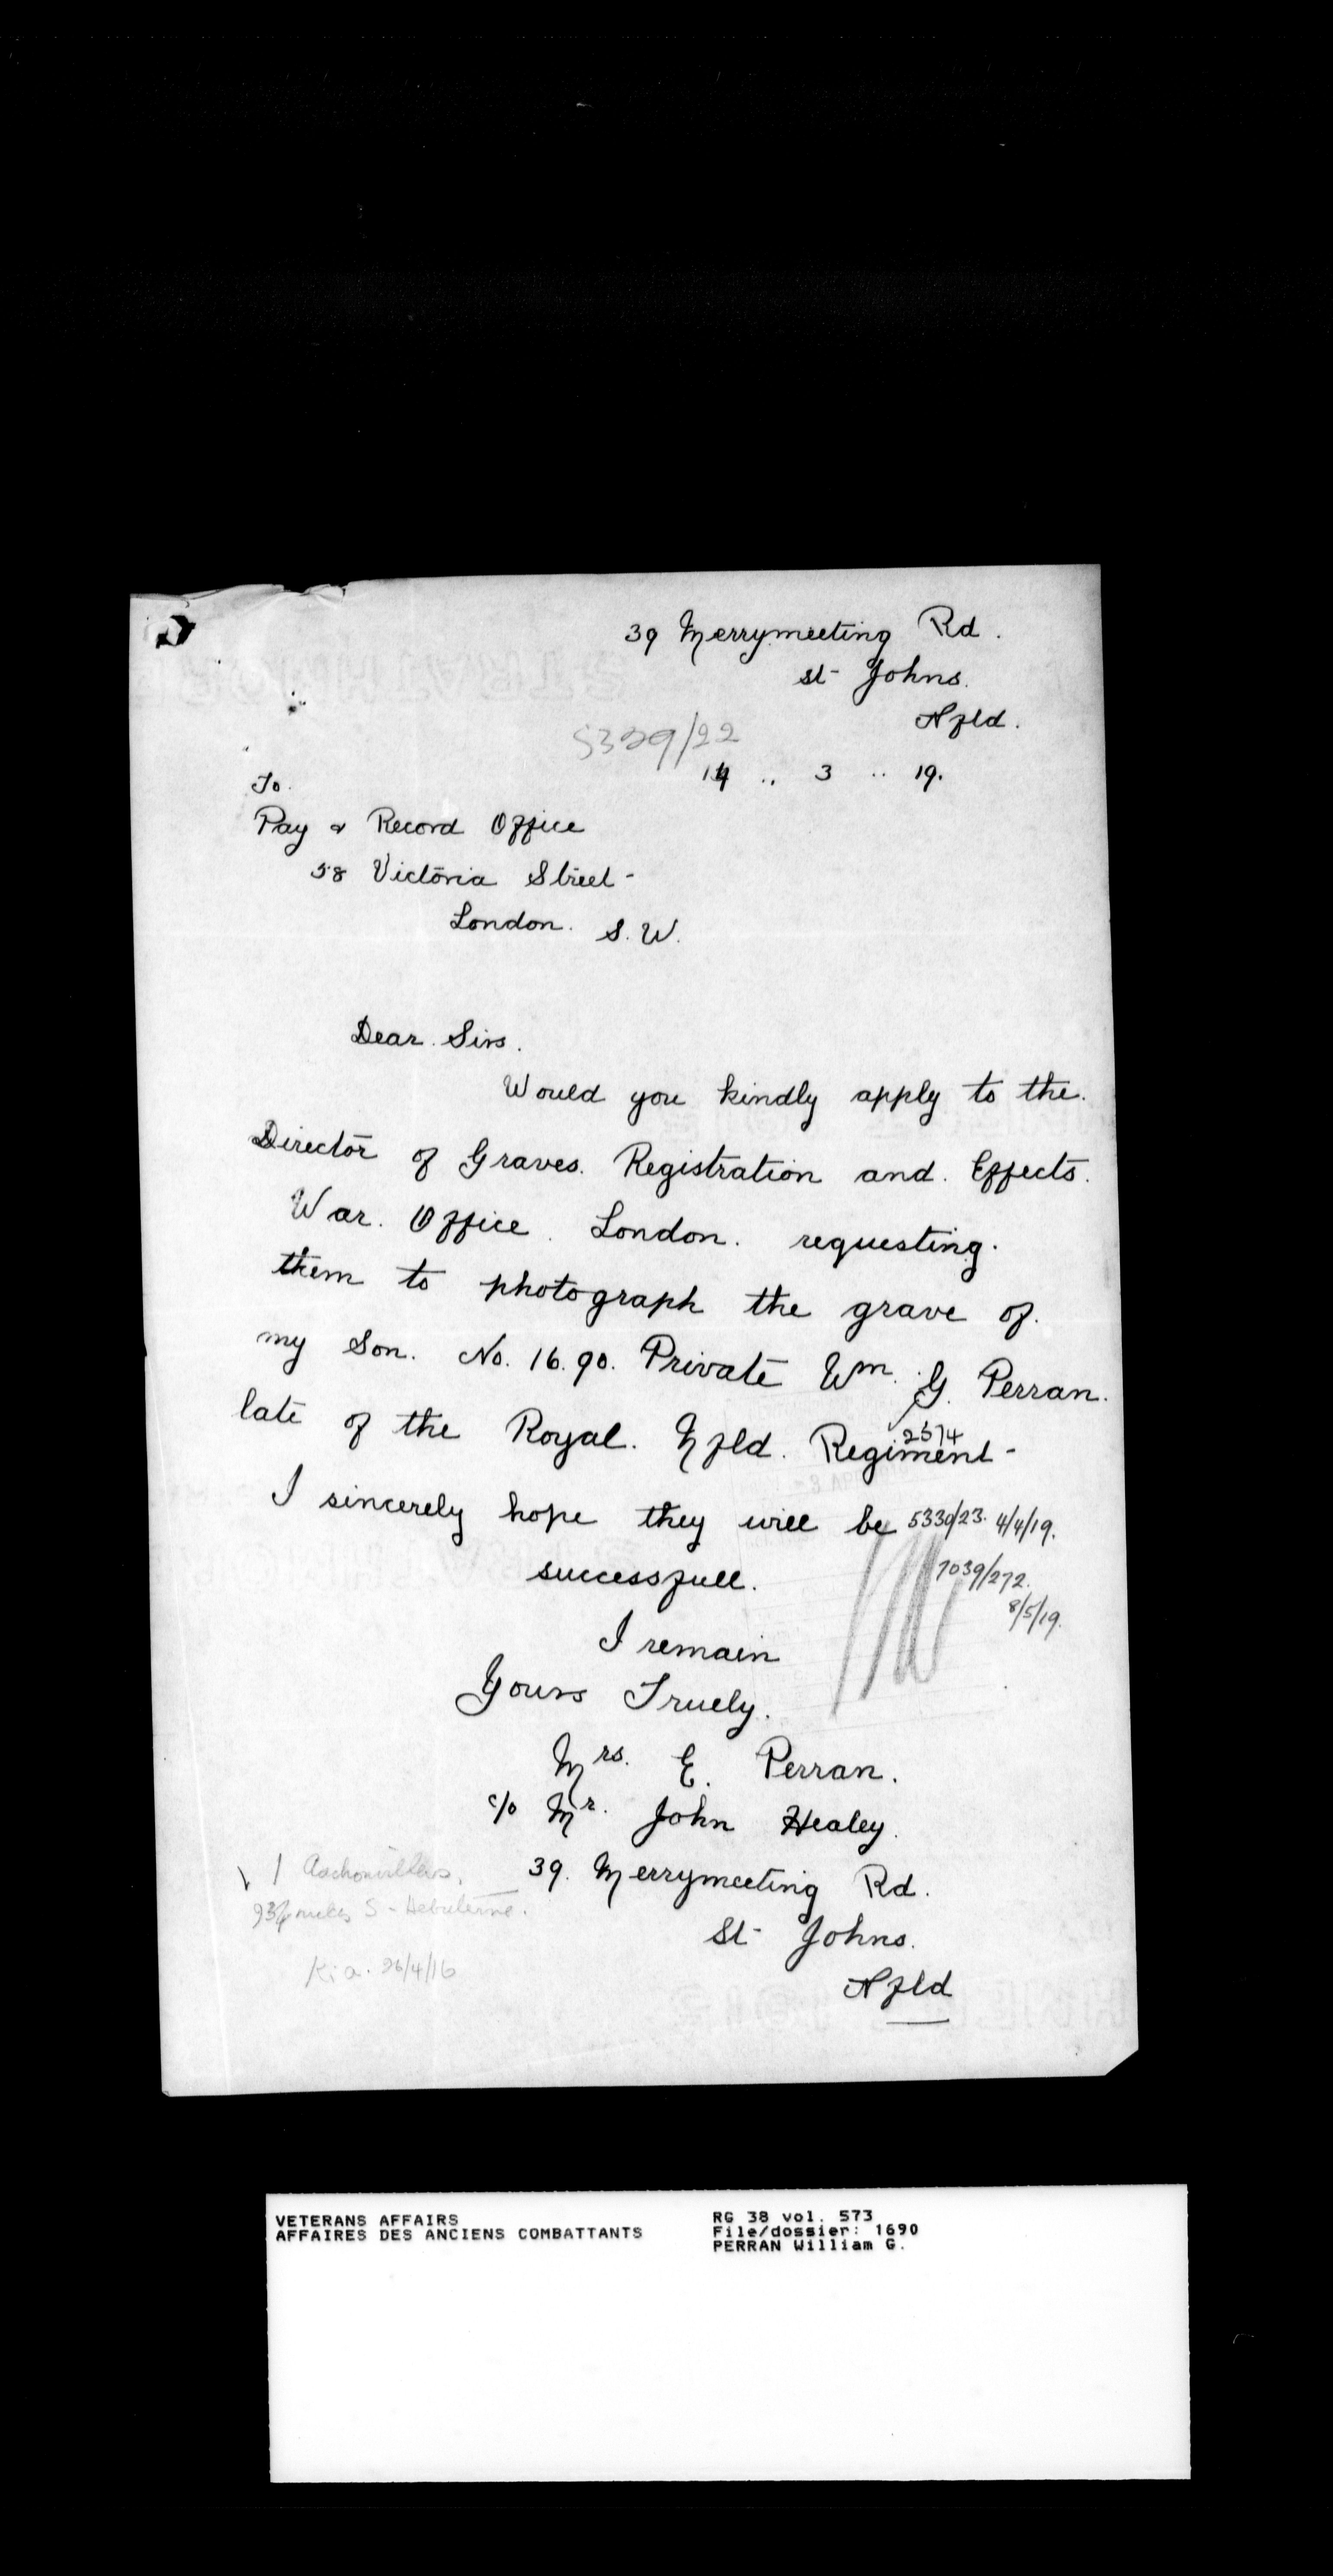 39 Merrymeeting Rd.
St Johns.
Nfld.
5339/22
14 .. 3 .. 19.
To.
Pay & Record Office
58 Victoria Street
London. S. W.
Dear. Sirs.
Would you kindly apply to the.
Director of Graves. Registration and. Effects.
War. Office. London. requesting.
them to photograph the grave of.
my Son. No. 16.90. Private Wm. G. Perran.
2574
late of the Royal. Nfld. Regiment -
I sincerely hope they will be
5339/23. 4/4/19.
successfull.
7039/272.
8/5/19.
I remain
Yours Truely.
Mrs. E. Perran.
c/o Mr. John Healey.
39. Merrymeeting Rd.
St Johns.
Nfld
miles S - Hebuterne.
K i a. 26/4/16
VETERANS AFFAIRS
AFFAIRES DES ANCIENS COMBATTANTS
RG 38 vol. 573
File/dossier: 1690
PERRAN William G.